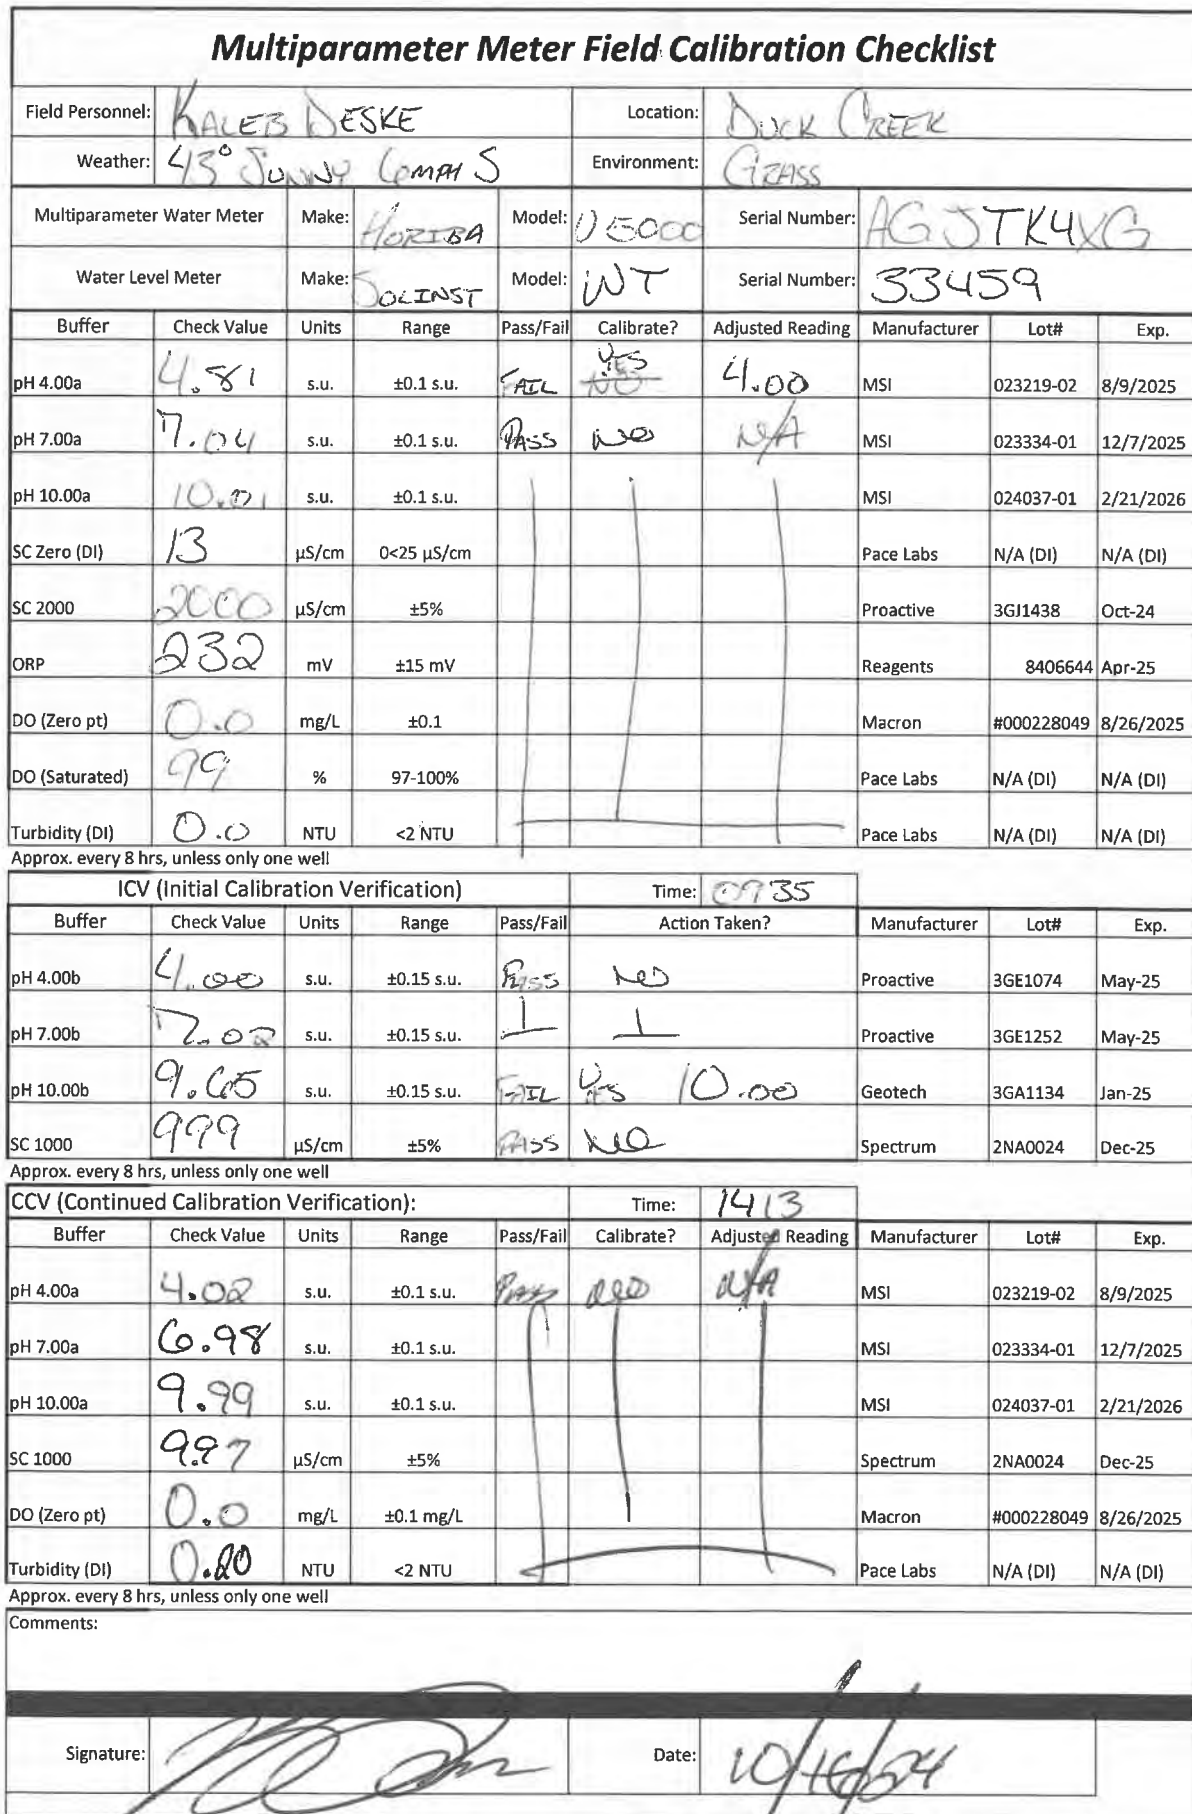 Multiparameter Meter Field Calibration Checklist
Field Personnel: KALEB DESKE Location: DUCK CREEK
Weather: 43° SUNNY 6MPH S Environment: GRASS
Multiparameter Water Meter Make: HORIBA Model: U5000 Serial Number: AGJTK4XG
Water Level Meter Make: SOLINST Model: WT Serial Number: 33459
Buffer Check Value Units Range Pass/Fail Calibrate? Adjusted Reading Manufacturer Lot# Exp.
pH 4.00a 4.81 s.u. ±0.1 s.u. FAIL YES NO 4.00 MSI 023219-02 8/9/2025
pH 7.00a 7.04 s.u. ±0.1 s.u. PASS NO N/A MSI 023334-01 12/7/2025
pH 10.00a 10.01 s.u. ±0.1 s.u. MSI 024037-01 2/21/2026
SC Zero (DI) 13 µS/cm 0<25 µS/cm Pace Labs N/A (DI) N/A (DI)
SC 2000 2000 µS/cm ±5% Proactive 3GJ1438 Oct-24
ORP 232 mV ±15 mV Reagents 8406644 Apr-25
DO (Zero pt) 0.0 mg/L ±0.1 Macron #000228049 8/26/2025
DO (Saturated) 99 % 97-100% Pace Labs N/A (DI) N/A (DI)
Turbidity (DI) 0.0 NTU <2 NTU Pace Labs N/A (DI) N/A (DI)
Approx. every 8 hrs, unless only one well
ICV (Initial Calibration Verification) Time: 0935
Buffer Check Value Units Range Pass/Fail Action Taken? Manufacturer Lot# Exp.
pH 4.00b 4.00 s.u. ±0.15 s.u. PASS NO Proactive 3GE1074 May-25
pH 7.00b 7.02 s.u. ±0.15 s.u. Proactive 3GE1252 May-25
pH 10.00b 9.65 s.u. ±0.15 s.u. FAIL YES 10.00 Geotech 3GA1134 Jan-25
SC 1000 999 µS/cm ±5% PASS NO Spectrum 2NA0024 Dec-25
Approx. every 8 hrs, unless only one well
CCV (Continued Calibration Verification): Time: 1413
Buffer Check Value Units Range Pass/Fail Calibrate? Adjusted Reading Manufacturer Lot# Exp.
pH 4.00a 4.02 s.u. ±0.1 s.u. PASS NO N/A MSI 023219-02 8/9/2025
pH 7.00a 6.98 s.u. ±0.1 s.u. MSI 023334-01 12/7/2025
pH 10.00a 9.99 s.u. ±0.1 s.u. MSI 024037-01 2/21/2026
SC 1000 997 µS/cm ±5% Spectrum 2NA0024 Dec-25
DO (Zero pt) 0.0 mg/L ±0.1 mg/L Macron #000228049 8/26/2025
Turbidity (DI) 0.20 NTU <2 NTU Pace Labs N/A (DI) N/A (DI)
Approx. every 8 hrs, unless only one well
Comments:
Signature: Date: 10/16/24